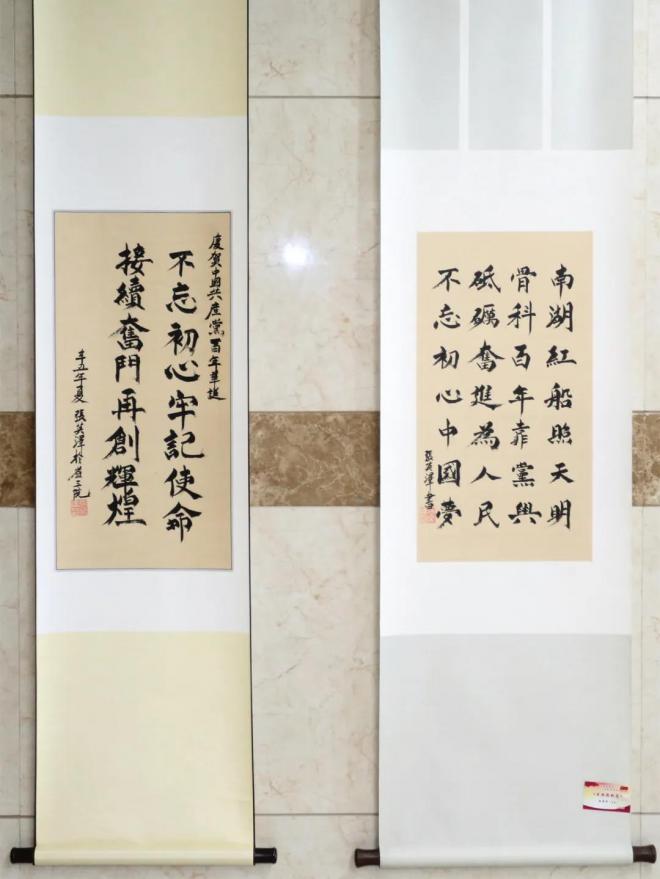 慶賀中国共産黨百年華诞
不忘初心牢記使命
接續奮鬥再創輝煌
辛丑年夏 張英澤於
南湖紅船照天明
骨科百年靠黨興
砥礪奮進為人民
不忘初心中國夢
張英澤書